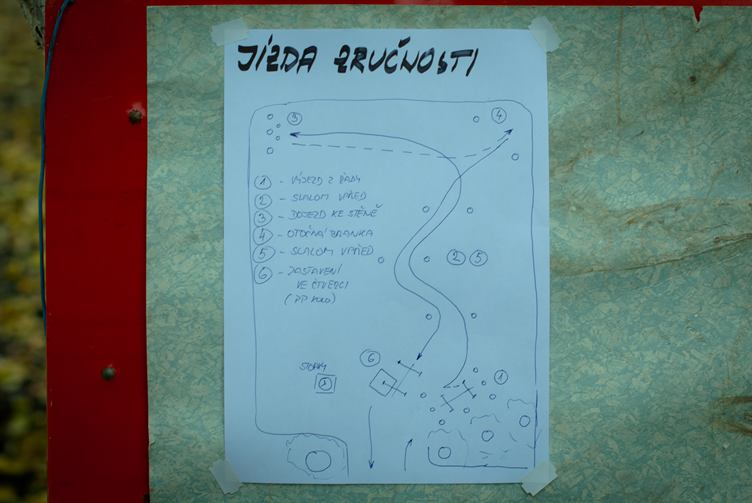 JÍZDA ZRUČNOSTI
3
4
1 - VÝJEZD Z ŘADY
2 - SLALOM VPŘED
3 - DOJEZD KE STĚNĚ
4 - OTOČNÁ BRANKA
5 - SLALOM VPŘED
6 - ZASTAVENÍ
VE ČTVERCI
(PP KOLO)
2 5
6
STOPKY
1